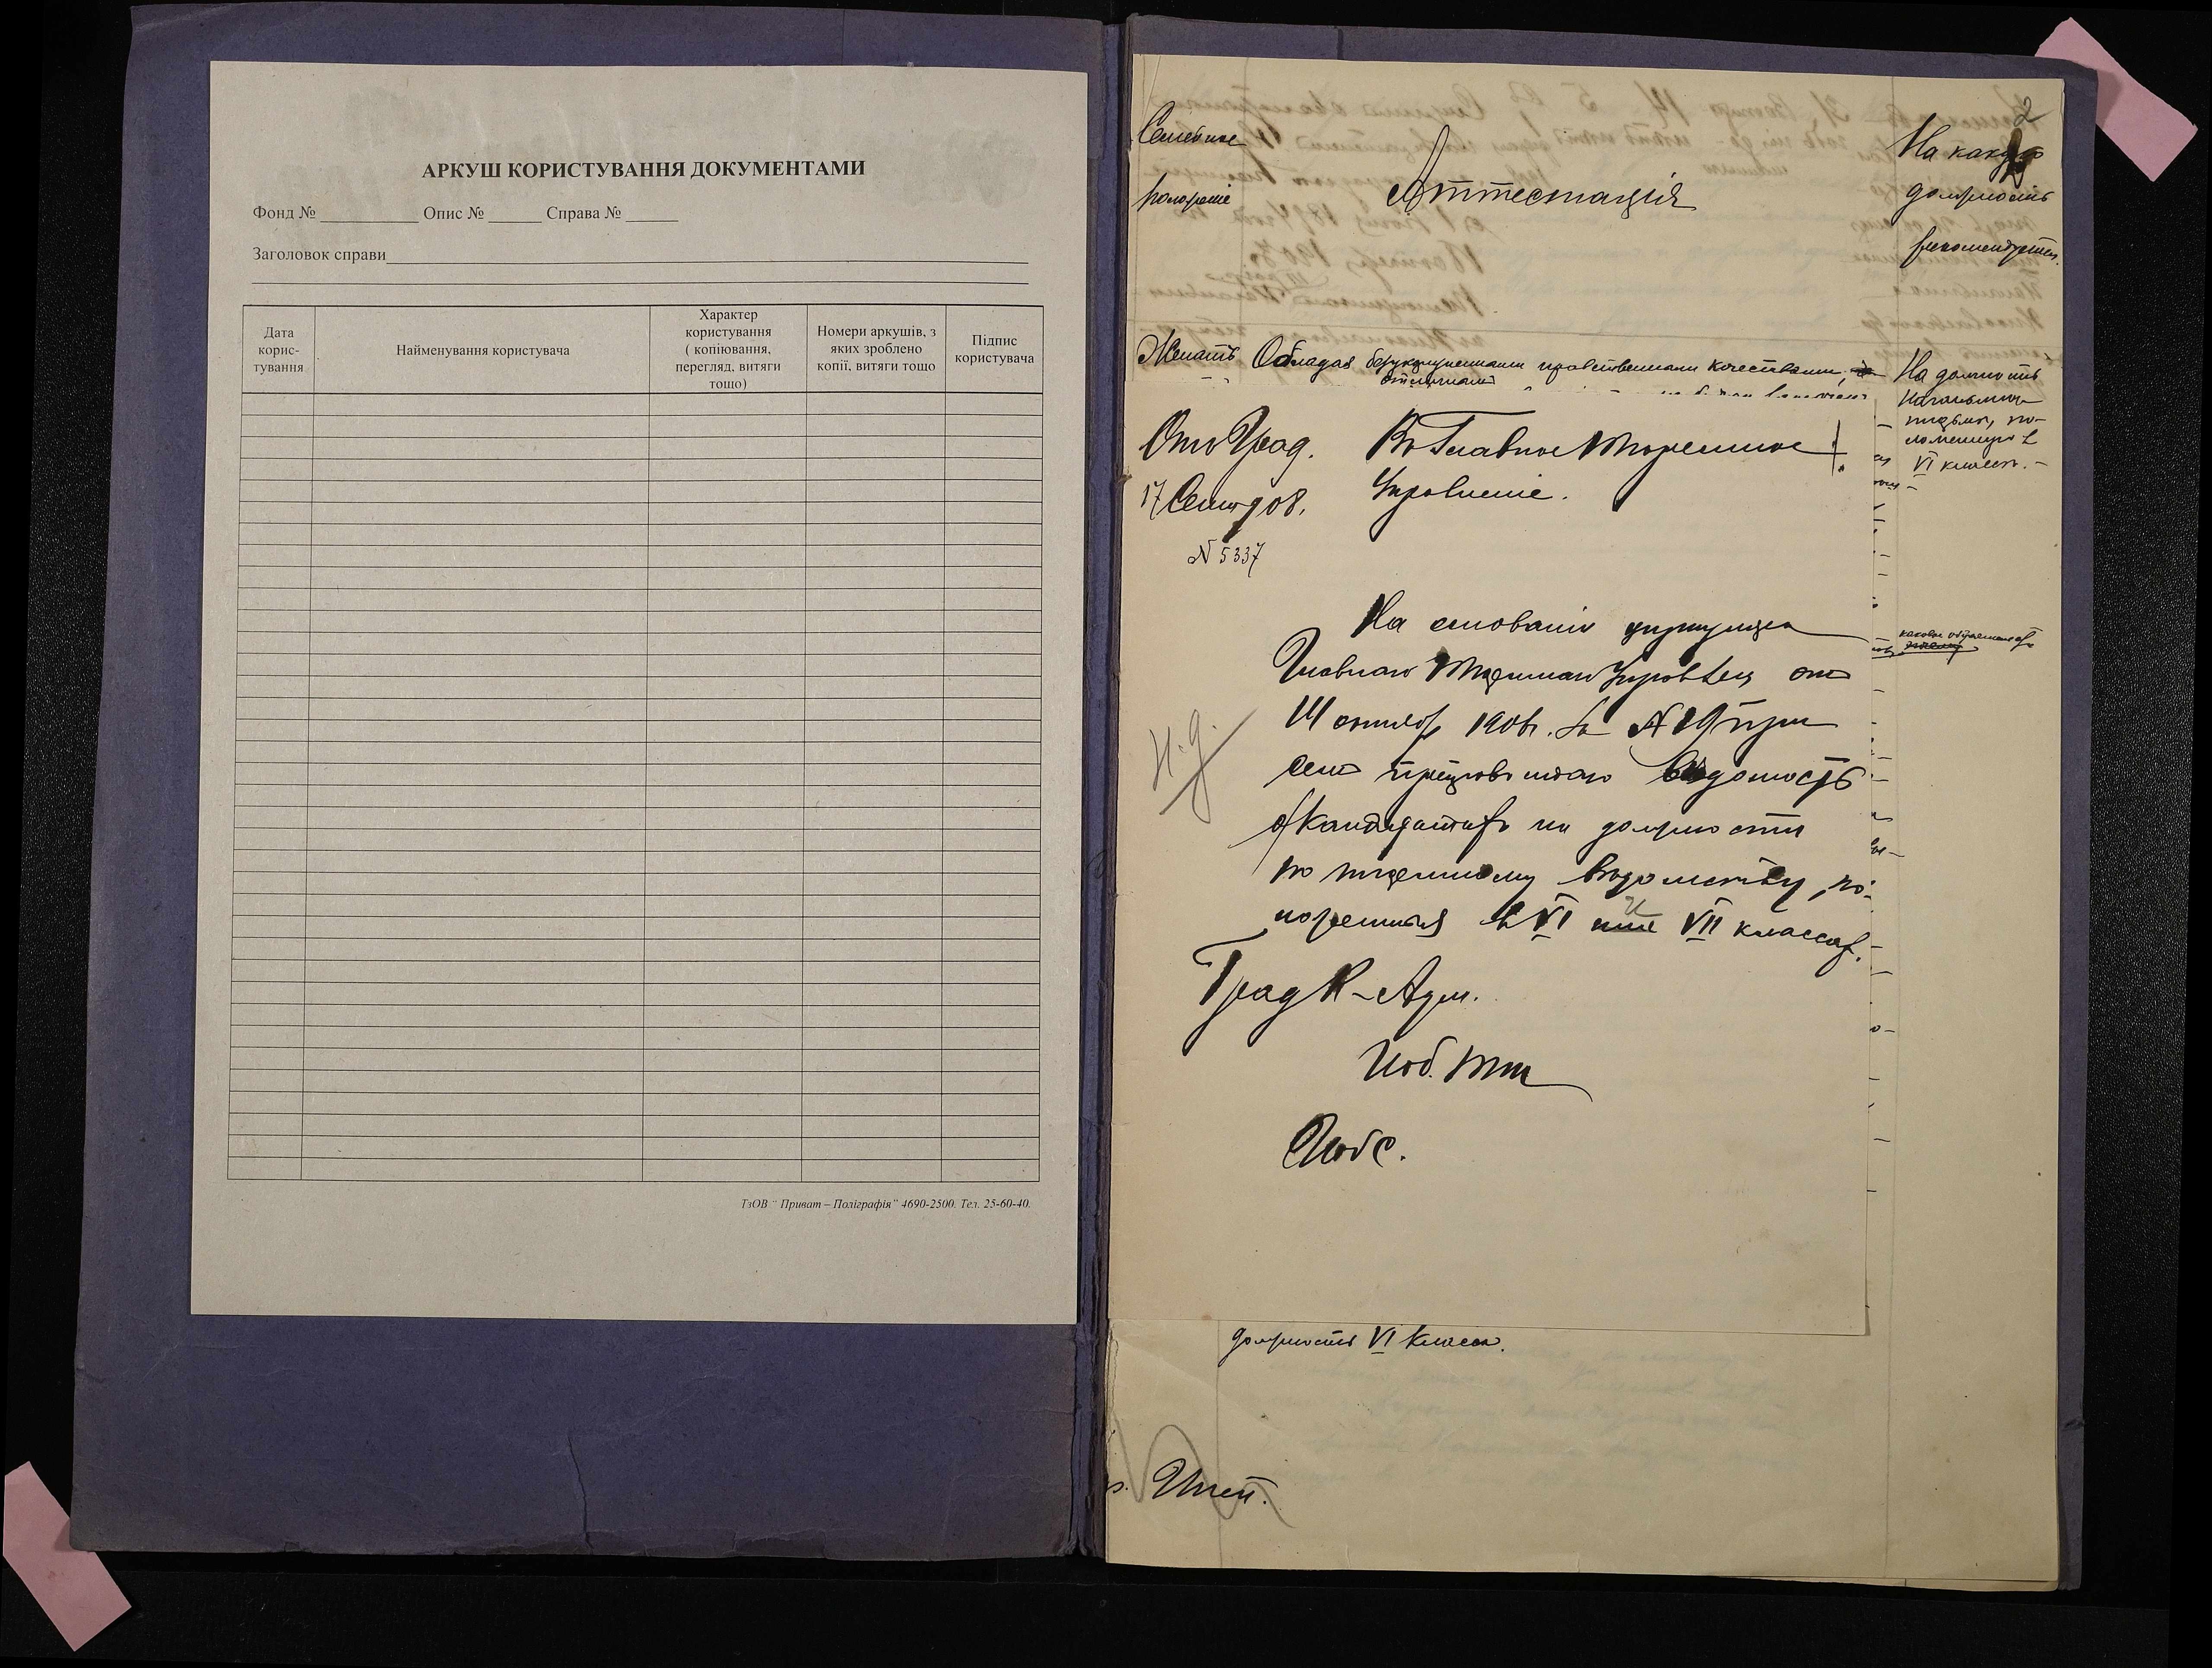 АРКУШ КОРИСТУВАННЯ ДОКУМЕНТАМИ
Фонд № __________ Опис № _____ Справа № _____
Заголовок справи
Дата корис-
тування
Найменування користувача
Характер
користування
( копіювання,
перегляд, витяги
тошо)
Номери аркушів, з
яких зроблено
копії, витяги тощо
Підпис
користувача
ТзОВ “ Приват – Поліграфія” 4690-2500. Тел. 25-60-40.
2
Семейное
положеніе
Аттестація
На какую
должность
рекомендуется.
Женатъ
Обладая безукоризненными нравственными качествами,
отличнымъ
На должность
Начальника
тюрьмы, по-
ложенную въ
VI классѣ.
От Град.
17 Сент 908.
N 5337
Въ Главное Тюремное
Управленіе.
На основаніи циркуляра
Главнаго Тюремнаго Управленія отъ
11 октября 1906г. за № 19 при
семъ представляю вѣдомость
о кандидатахъ на должности
по тюремному вѣдомству, по-
ложенныя въ VI и VII классахъ.
Н.д.
Град К-Адм.
Под. Тюр
должность VI класса.
Инсп.